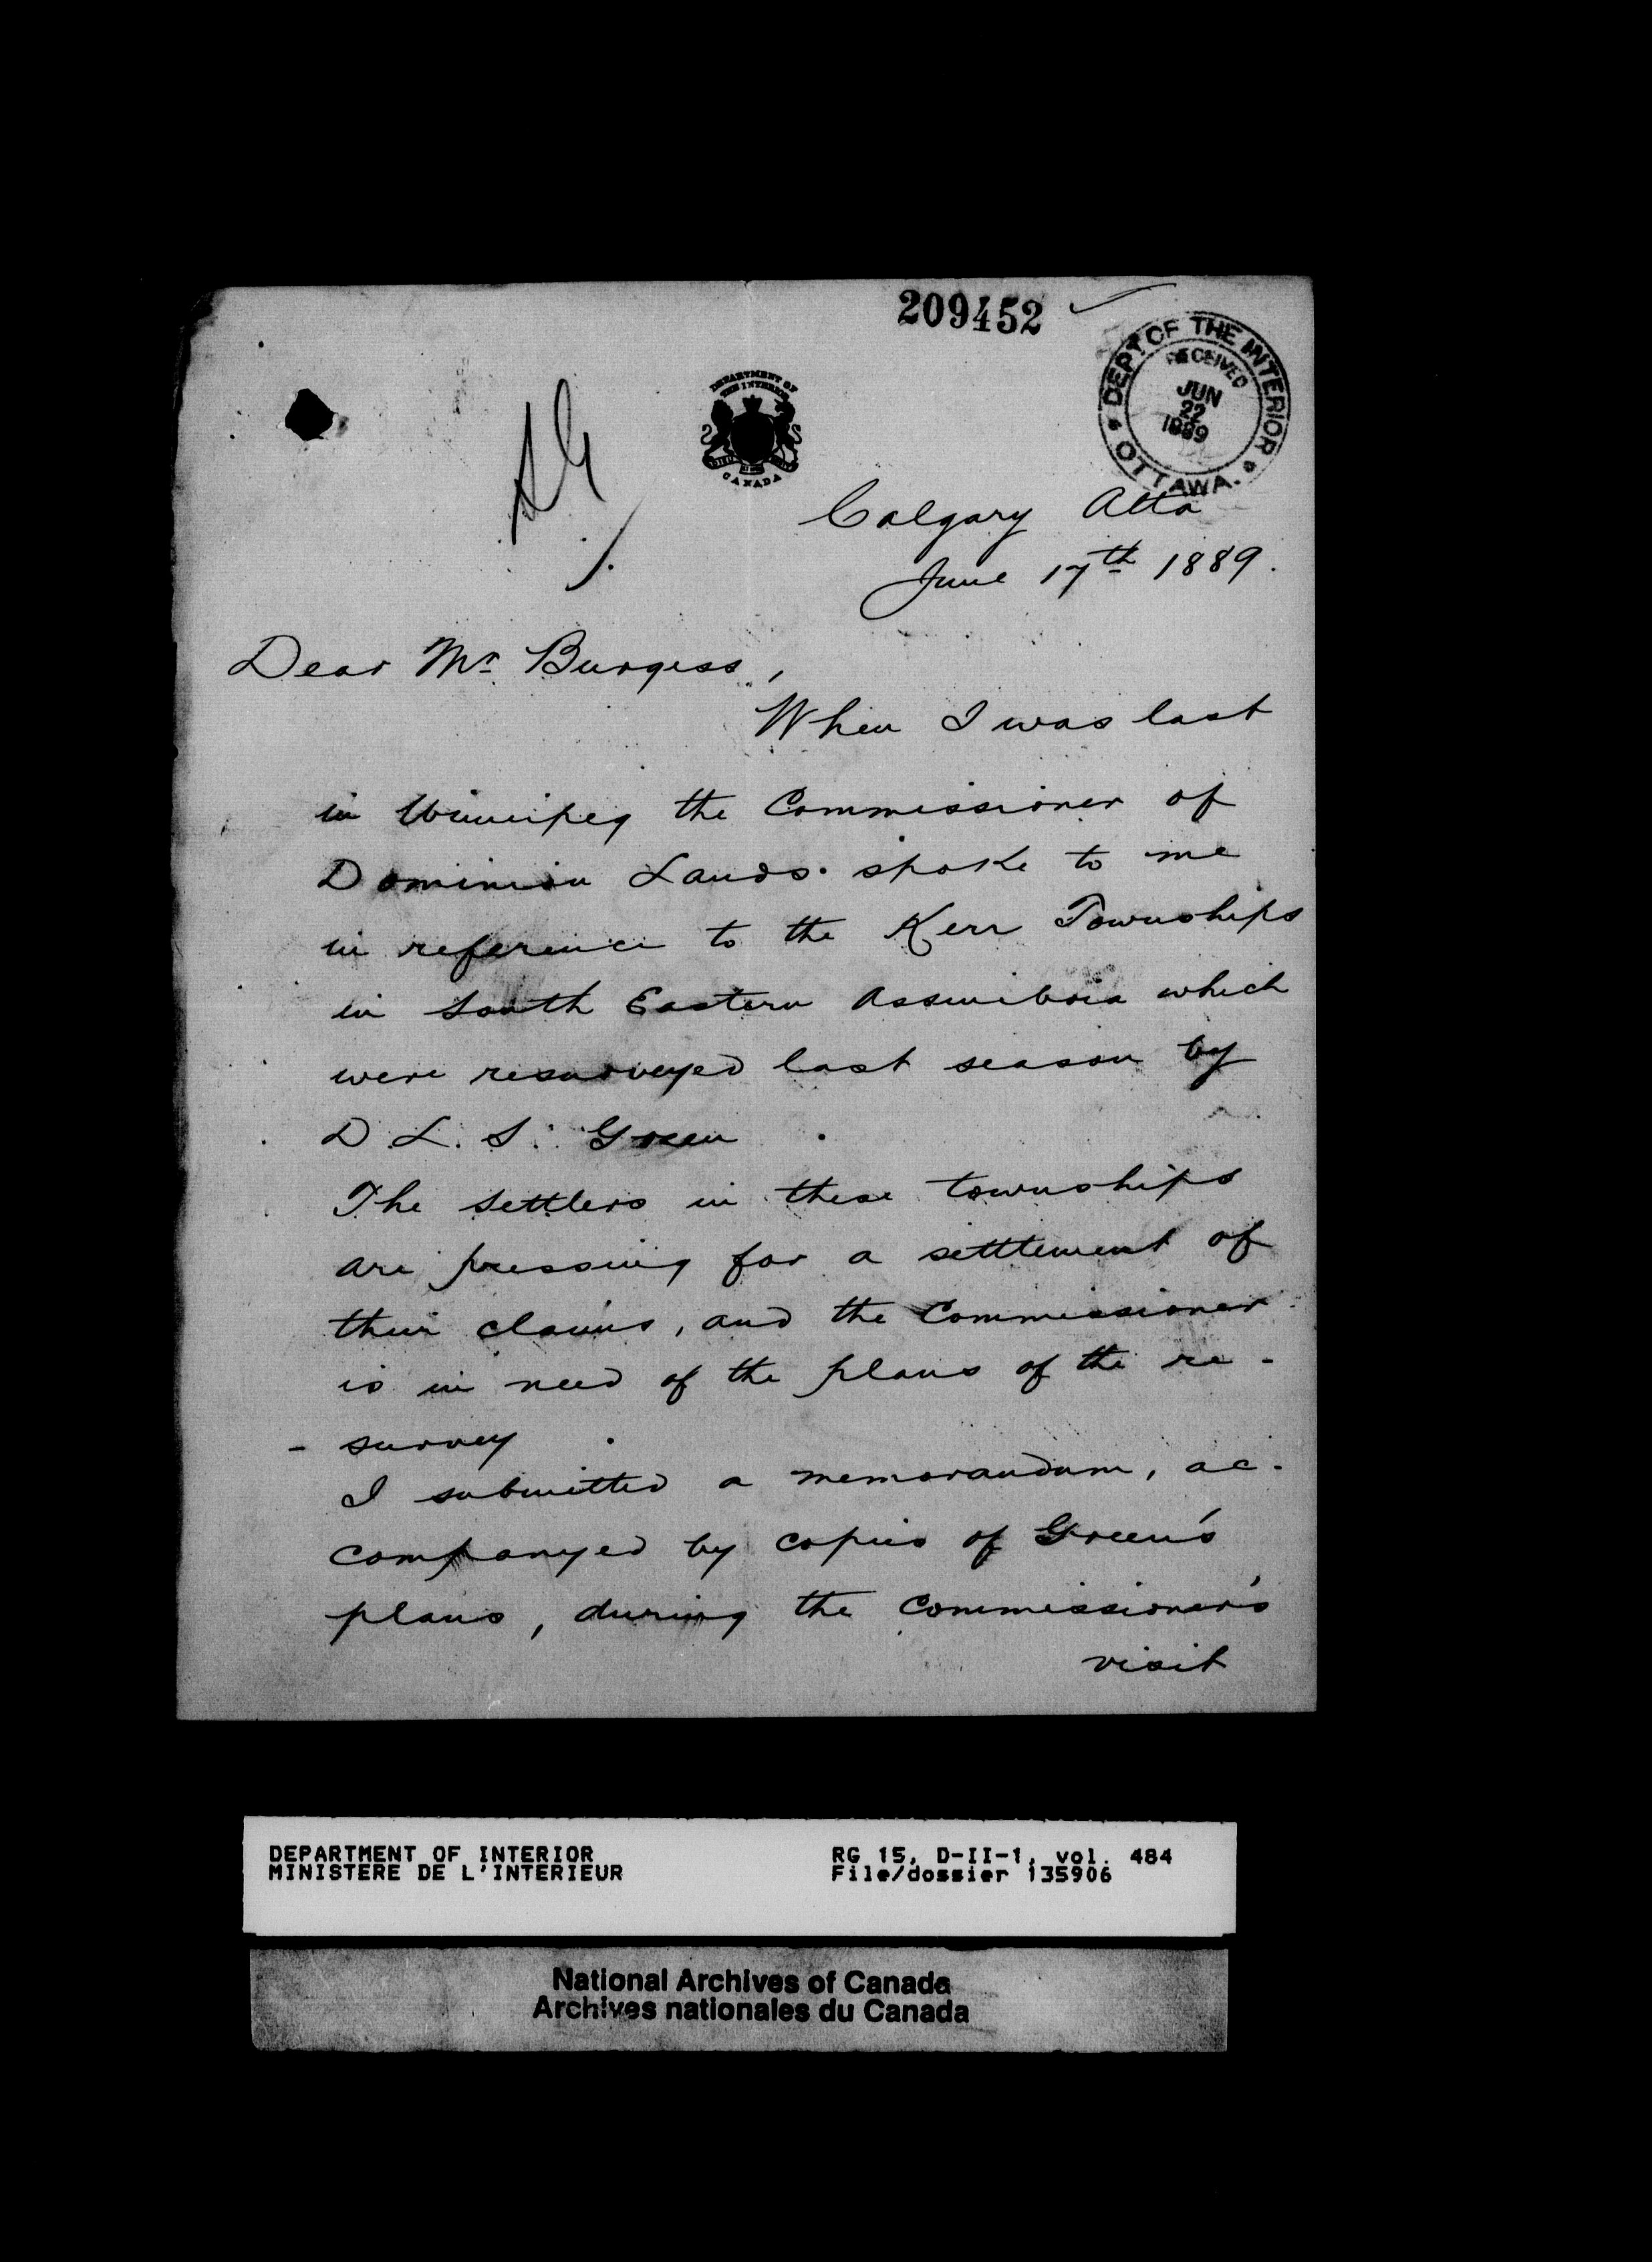 209452
DEPT. OF THE INTERIOR
RECEIVED
JUN
22
1889
OTTAWA.
DEPARTMENT OF
THE INTERIOR
CANADA
Calgary Alta
June 17th 1889.
Dear Mr Burgess,
When I was last
in Winnipeg the Commissioner of
Dominion Lands. spoke to me
in reference to the Kerr Townships
in South Eastern Assiniboia which
were resurveyed last season by
D. L. S. Green.
The settlers in these townships
are pressing for a settlement of
their claims, and the Commissioner
is in need of the plans of the re-
- survey.
I submitted a memorandum, ac-
companyed by copies of Green's
plans, during the Commissioner's
visit
DEPARTMENT OF INTERIOR
MINISTERE DE L'INTERIEUR
RG 15, D-II-1, vol. 484
File/dossier 135906
National Archives of Canada
Archives nationales du Canada